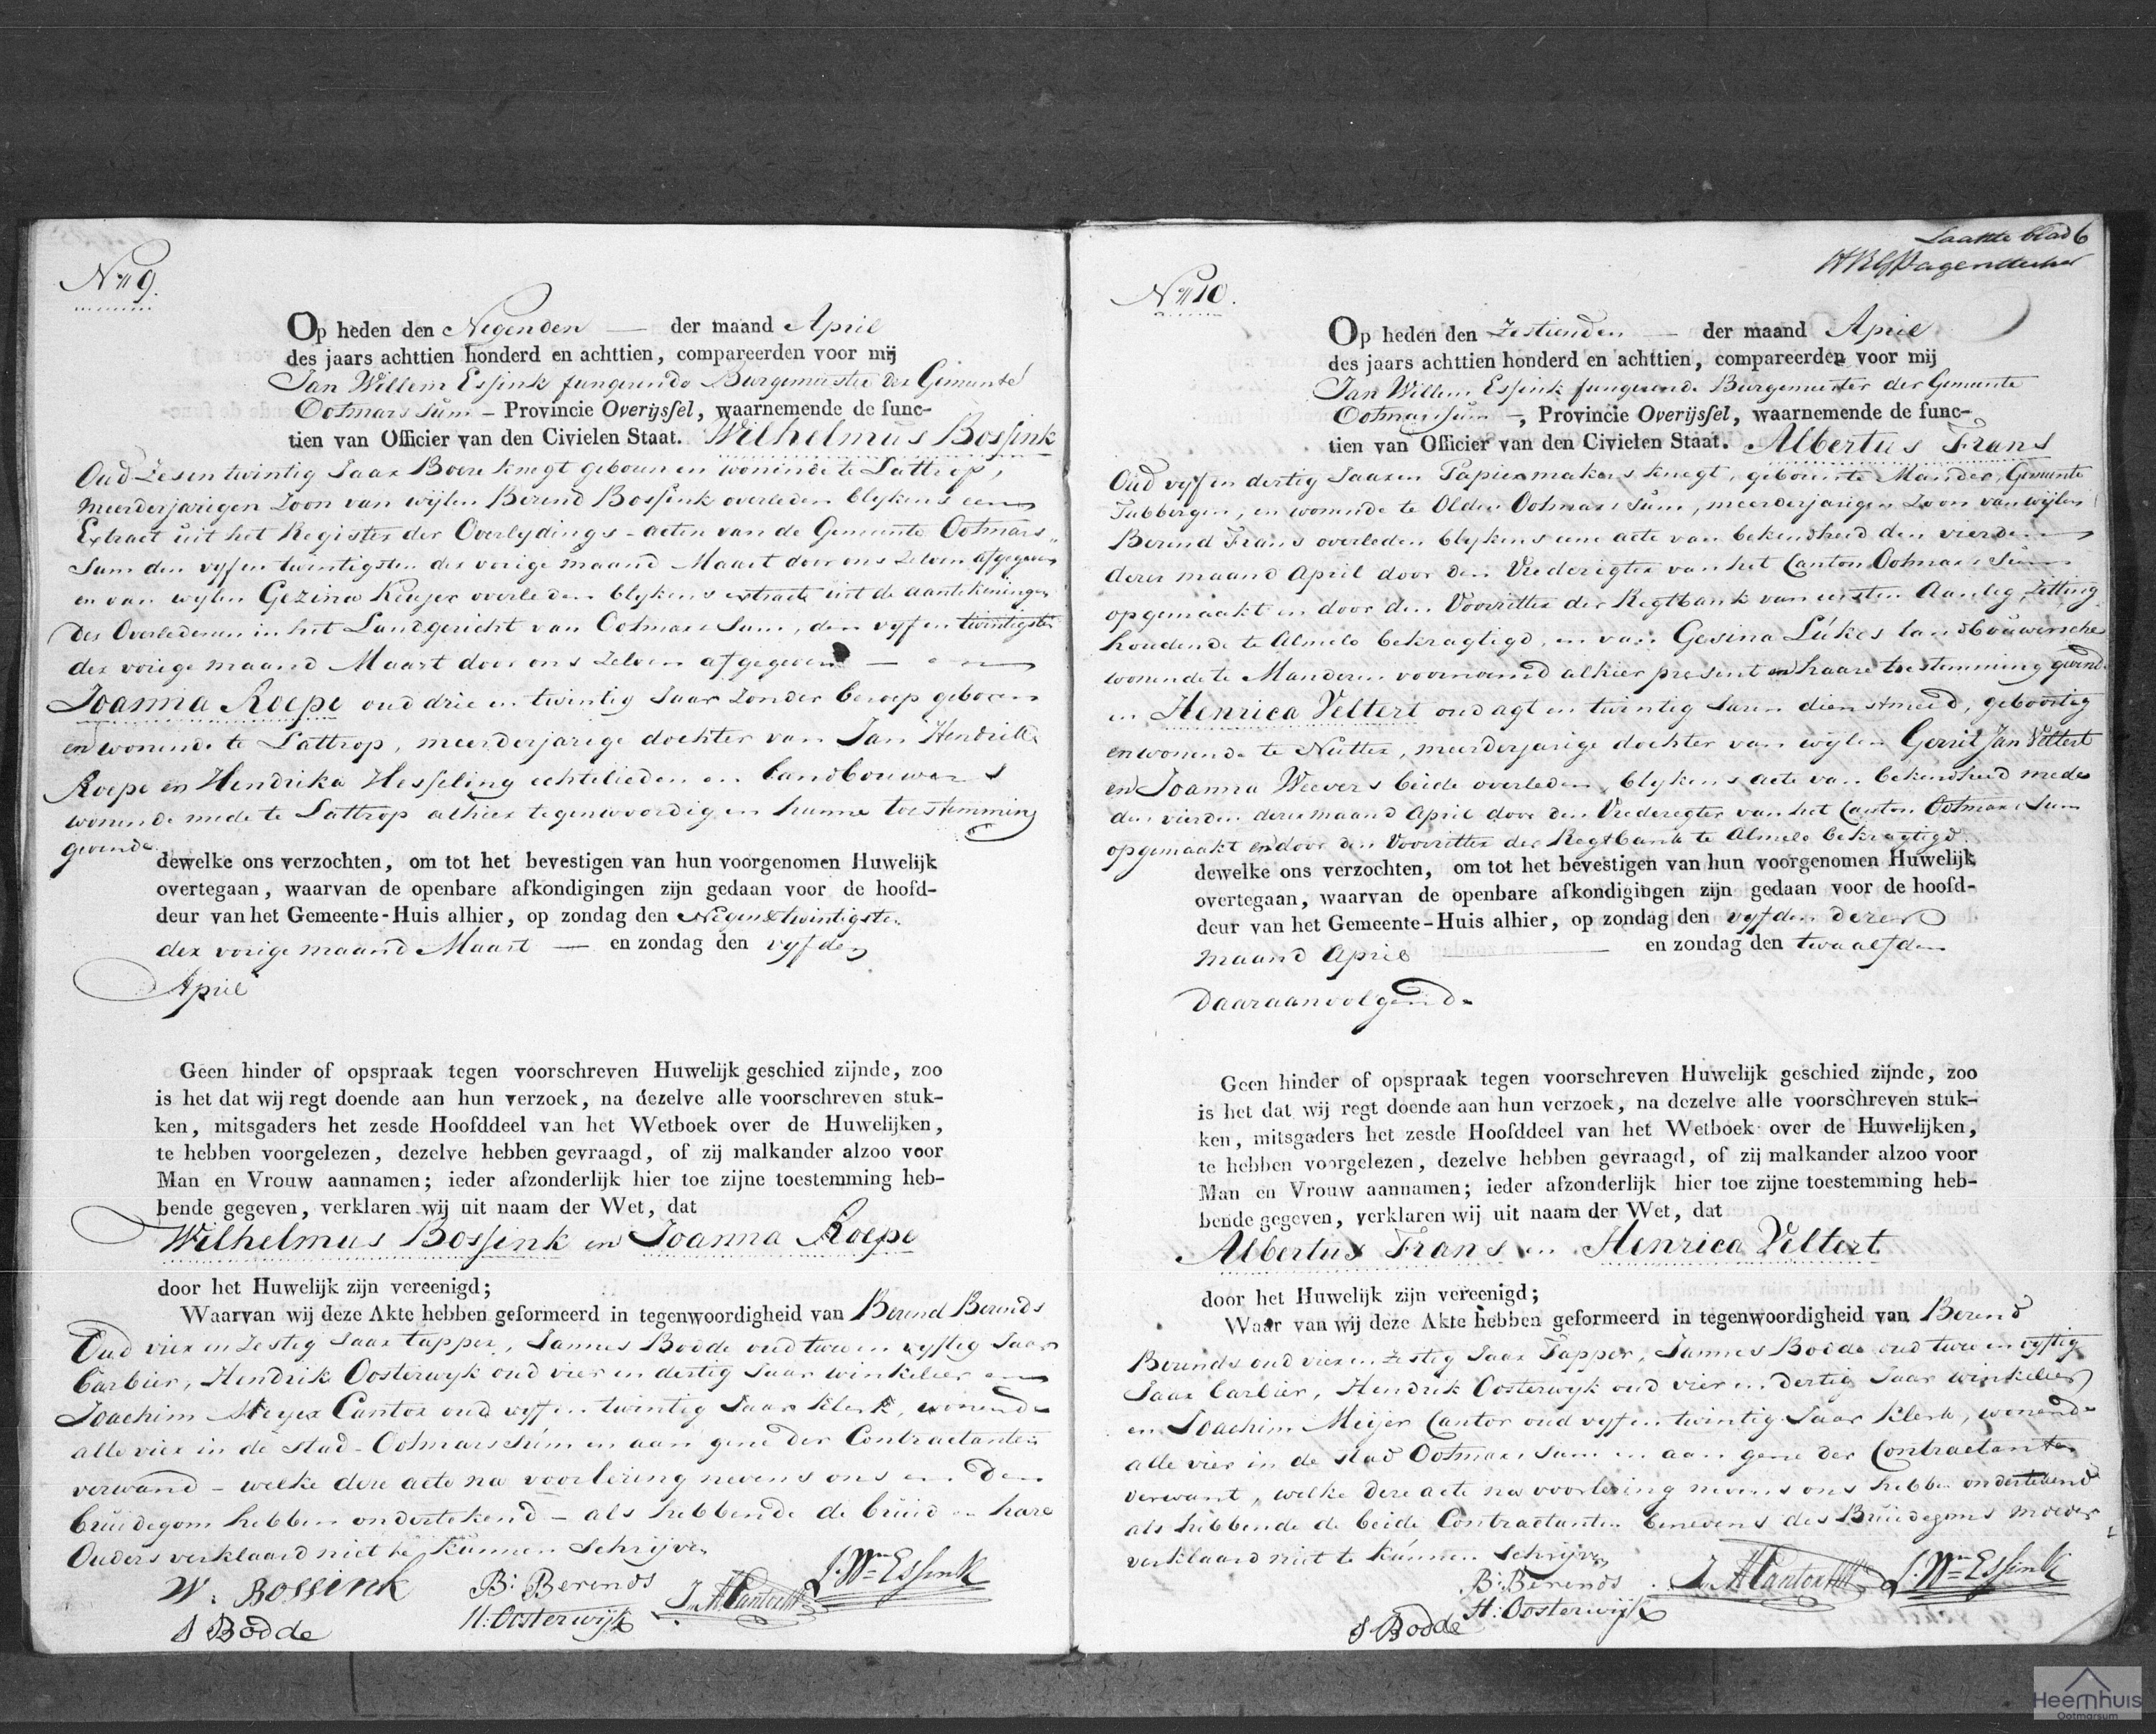 No 9.
Op heden den Negenden — der maand April
des jaars achttien honderd en achttien, compareerden voor mij
Jan Willem Essink fungerende Burgemeester der Gemeente
Ootmarssum – Provincie Overijssel, waarnemende de func-
tien van Officier van den Civielen Staat. Wilhelmus Bossink
Oud Zes en twintig Jaar Boere knegt geboren en woninde te Lattrop,
meerderjarigen Zoon van wijlen Berend Bossink overleden blykens een
Extract uit het Register der Overlydings-acten van de Gemeente Ootmars„
sum den vyf en twintigsten der vorige maand Maart door ons zelven afgegeven
en van wylen Gezina Keujer overleden blykens extract uit de aantekeningen
der Overledenen in het Landgericht van Ootmarssum, den vyf en twintigsten
der vorige maand Maart door ons zelven afgegeven — en
Joanna Roepe oud drie en twintig Jaar zonder beroep geboren
en wonende te Lattrop, meerderjarige dochter van Jan Hendrik
Roepe en Hendrika Hesseling echtelieden en landbouwers
wonende mede te Lattrop alhier tegenwoordig en hunne toestemming
gevende
dewelke ons verzochten, om tot het bevestigen van hun voorgenomen Huwelijk
overtegaan, waarvan de openbare afkondigingen zijn gedaan voor de hoofd-
deur van het Gemeente-Huis alhier, op zondag den Negen & twintigsten
der vorige maand Maart — en zondag den vyfden
April
Geen hinder of opspraak tegen voorschreven Huwelijk geschied zijnde, zoo
is het dat wij regt doende aan hun verzoek, na dezelve alle voorschreven stuk-
ken, mitsgaders het zesde Hoofddeel van het Wetboek over de Huwelijken,
te hebben voorgelezen, dezelve hebben gevraagd, of zij malkander alzoo voor
Man en Vrouw aannamen; ieder afzonderlijk hier toe zijne toestemming heb-
bende gegeven, verklaren wij uit naam der Wet, dat
Wilhelmus Bossink en Joanna Roepe
door het Huwelijk zijn vereenigd;
Waarvan wij deze Akte hebben geformeerd in tegenwoordigheid van Berend Berends
Oud vier en zestig Jaar tapper, Jannes Bodde oud twee en vyftig Jaar
Barbier, Hendrik Oosterwyk oud vier en dertig Jaar winkelier en
Joachim Meyer Cantor oud vyf en twintig Jaar klerk, wonende
alle vier in de stad Ootmarssum en aan gene der Contractanten
verwand – welke dere acte na voorlezing nevens ons en den
bruidegom hebben ondertekend – als hebbende de bruid en hare
Ouders verklaard niet te kunnen Schrijven
W. Bossink B: Berends J. M. Cantor J. Wm Essink
J Bodde H: Oosterwijk
Laatste blad 6
No 10.
Op heden den Zestienden — der maand April
des jaars achttien honderd en achttien, compareerden voor mij
Jan Willem Essink fungerende Burgemeester der Gemeente
Ootmarssum –, Provincie Overijssel, waarnemende de func-
tien van Officier van den Civielen Staat. Albertus Frans
Oud vyf en dertig Jaaren Papiermakers knegt, geboren te Mander, Gemeente
Tubbergen, en wonende te Olden Ootmarssum, meerderjarigen Zoon van wijlen
Berend Frans overleden blykens eene acte van bekendheid den vierden
derer maand April door den Vrederegter van het Canton Ootmarssum
opgemaakt en door den Voorzitter der Regtbank van eersten Aanleg zitting
houdende te Almelo bekragtigd, en van Gesina Lukes landbouwersche
wonende te Manderen voornoemd alhier present en haare toestemming gevende
en Henrica Veltert oud agt en twintig Jaren dienstmeid, geboortig
en wonende te Nutter, meerderjarige dochter van wylen Gerrit Jan Veltert
en Joanna Weevers beide overleden, blykens acte van bekendheid mede
den vierden derer maand April door den Vrederegter van het Canton Ootmarssum
opgemaakt en door den Voorzitter der Regtbank te Almelo bekragtigd.
dewelke ons verzochten, om tot het bevestigen van hun voorgenomen Huwelijk
overtegaan, waarvan de openbare afkondigingen zijn gedaan voor de hoofd-
deur van het Gemeente-Huis alhier, op zondag den vyfden derer
maand April — en zondag den twaalfden
daaraanvolgende
Geen hinder of opspraak tegen voorschreven Huwelijk geschied zijnde, zoo
is het dat wij regt doende aan hun verzoek, na dezelve alle voorschreven stuk-
ken, mitsgaders het zesde Hoofddeel van het Wetboek over de Huwelijken,
te hebben voorgelezen, dezelve hebben gevraagd, of zij malkander alzoo voor
Man en Vrouw aannamen; ieder afzonderlijk hier toe zijne toestemming heb-
bende gegeven, verklaren wij uit naam der Wet, dat
Albertus Frans en Henrica Veltert
door het Huwelijk zijn vereenigd;
Waar van wij deze Akte hebben geformeerd in tegenwoordigheid van Berend
Berends oud vier en zestig Jaar Tapper, Jannes Bodde oud twee en vyftig
Jaar barbier, Hendrik Oosterwyk oud vier en dertig Jaar winkelier
en Joachim Meijer Cantor oud vyf en twintig Jaar klerk, wonende
alle vier in de stad Ootmarssum en aan gene der Contractanten
verwant, welke dere acte na voorlezing nevens ons hebben ondertekend
als hebbende de beide Contractanten benevens des Bruidegoms moeder
verklaard niet te kunnen Schrijven
B: Berends J. M. Cantor J. Wm Essink
J Bodde H: Oosterwijk
Heemhuis
Ootmarsum